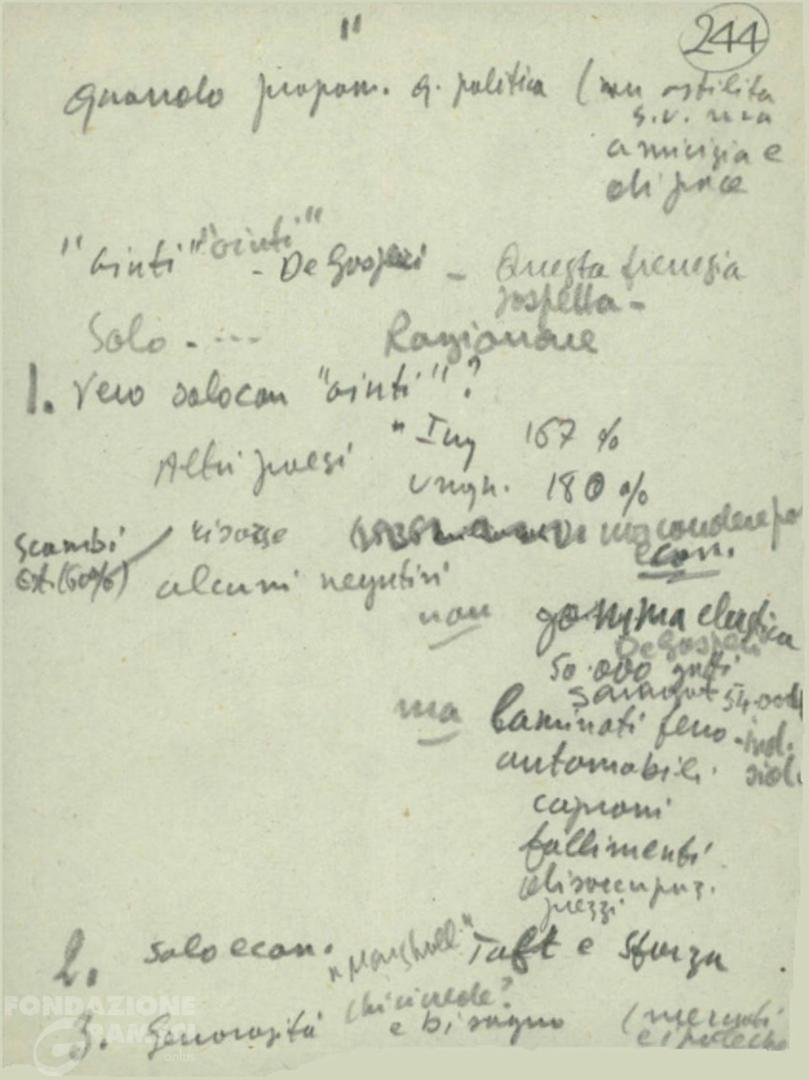 "
244
quando propon. q. politica (non ostilità
s.u. ma
amicizia e
di pace
"aiuti" "aiuti" - De Gasperi - Questa frenesia
sospetta -
Solo - --- Ragionare
1. Vero solo con "aiuti"?
Altri paesi " Ing 167 %
Ungh. 180 %
Scambi
est. (60%) risorse
econ.
alcuni negativi
non gomma elastica
De Gasperi
50.000
Saragat 54.000
ma laminati ferro - ind.
automobili.
caproni
fallimenti
disoccupaz.
prezzi
2. solo econ. "Marshall" Taft e Sforza
chi crede?
3. Generosità e bisogno (mercati
e ipoteche
FONDAZIONE
GRAMSCI
onlus